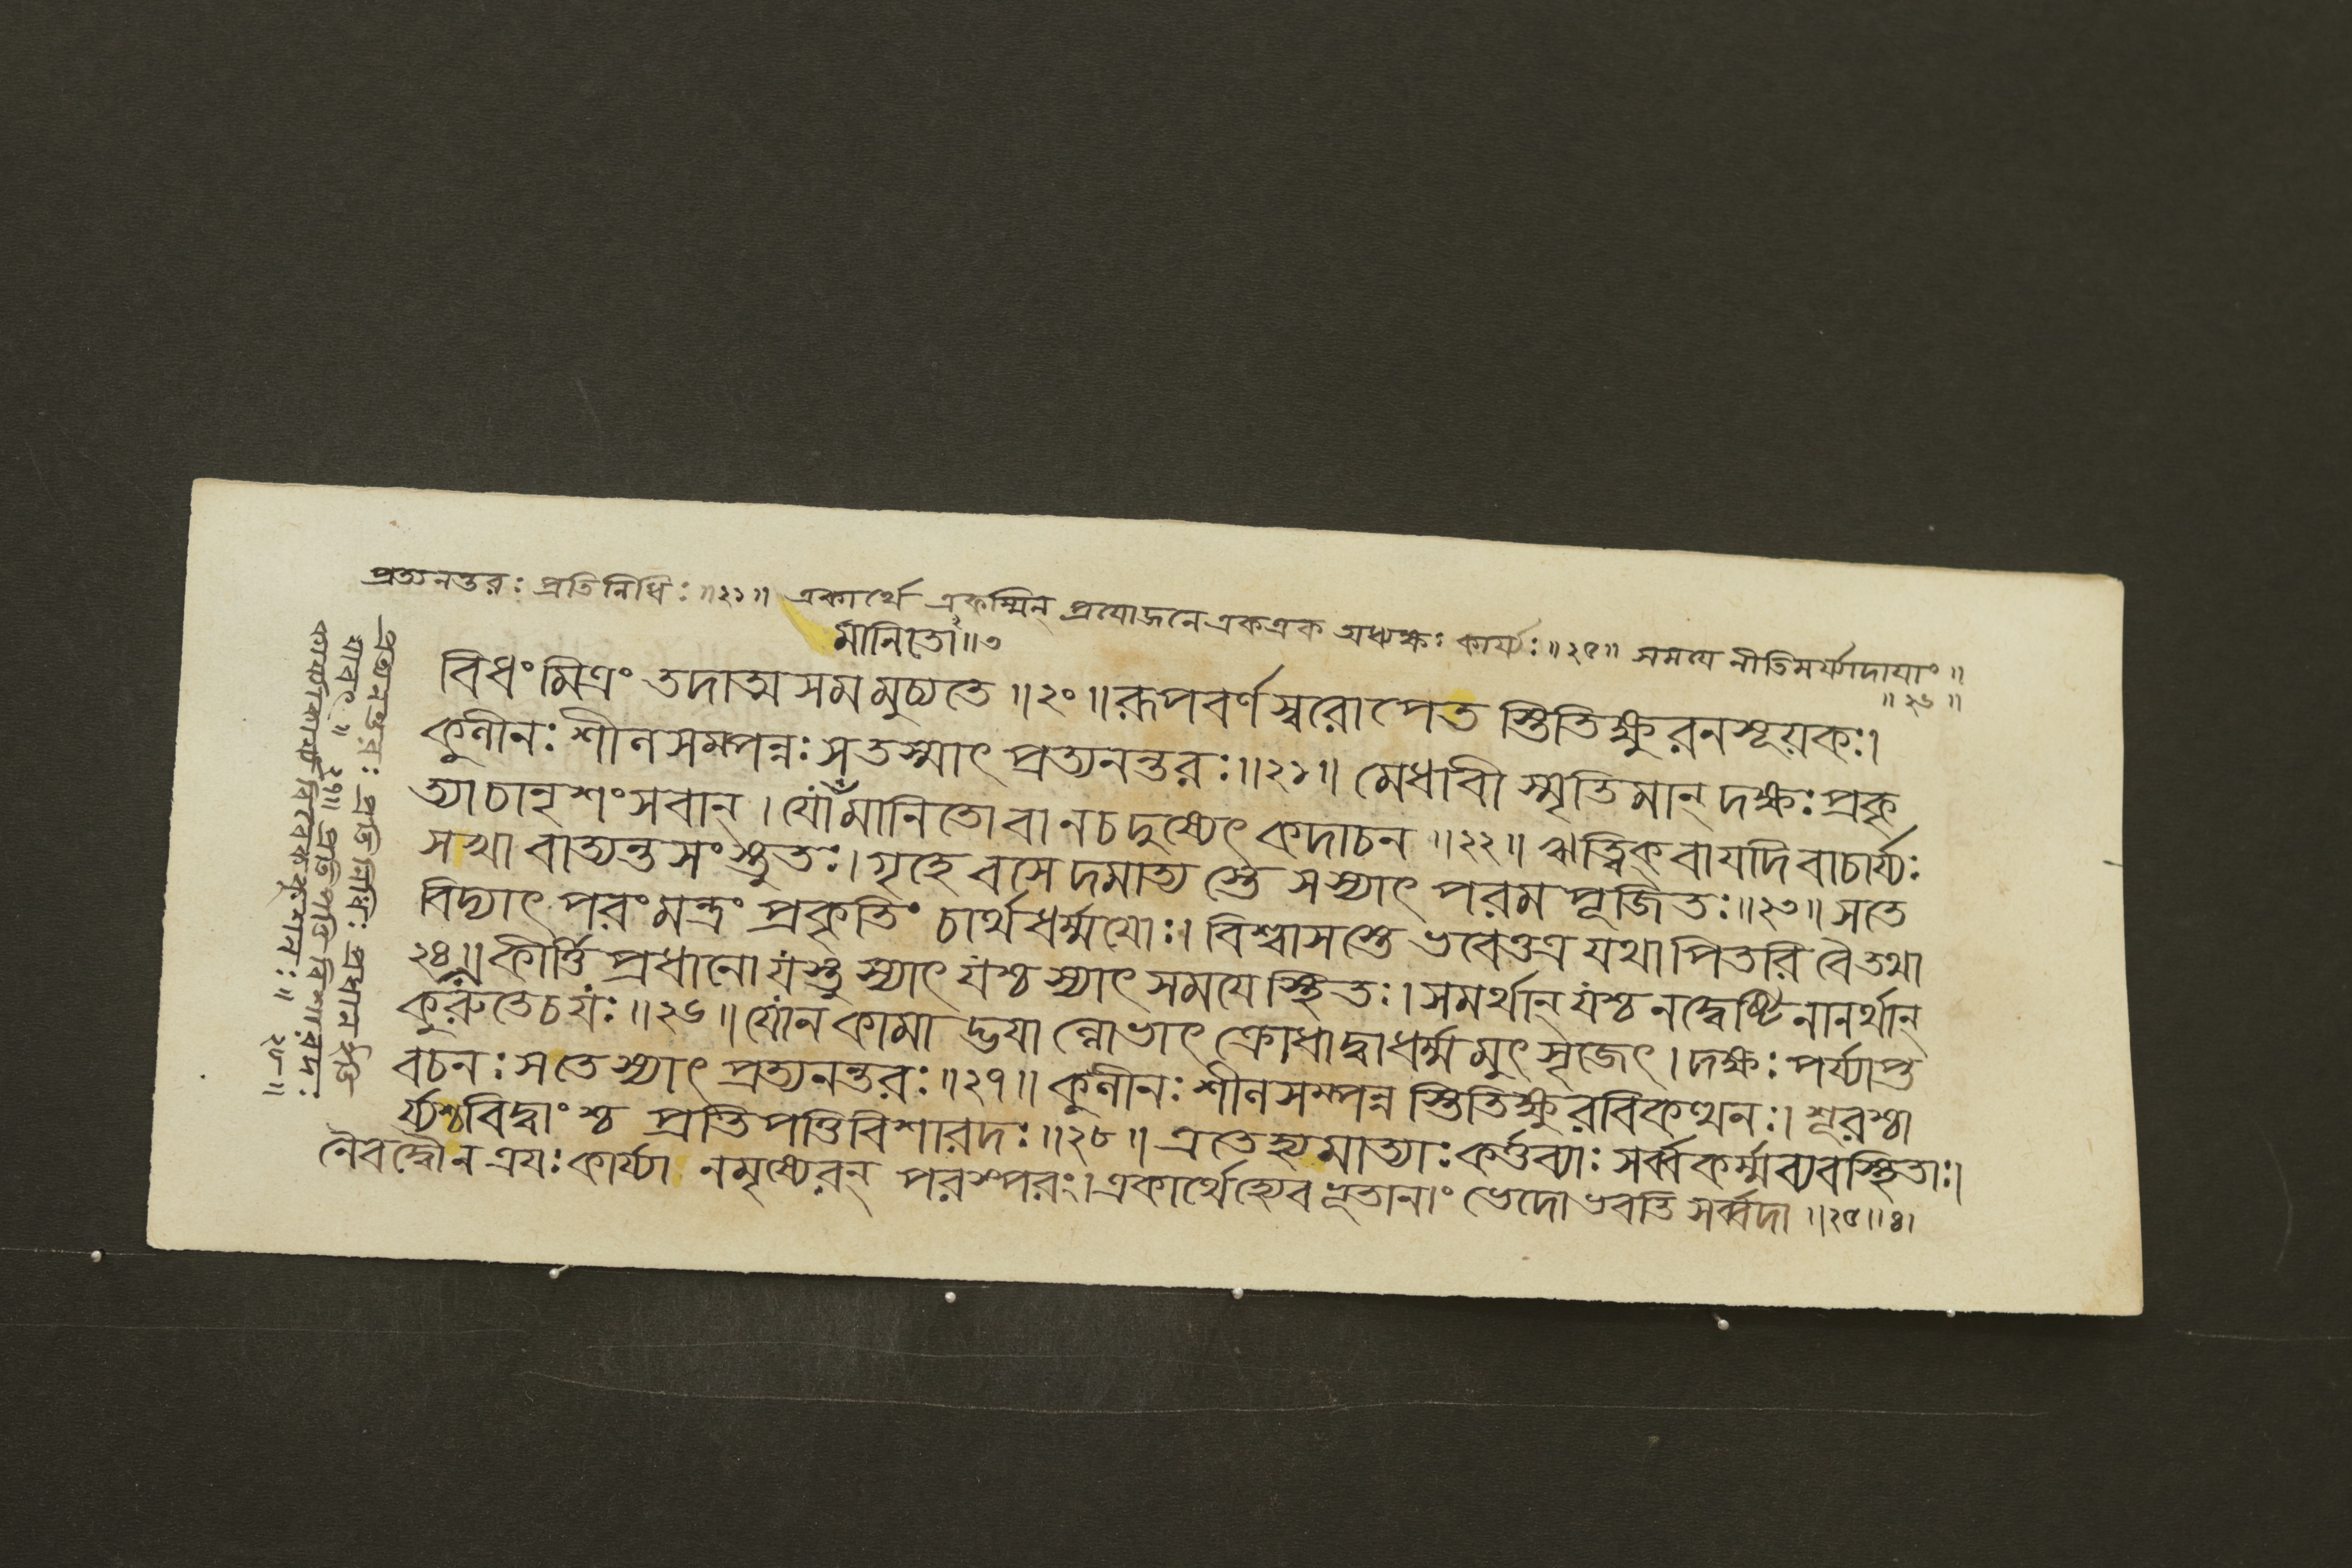 প্রত্যনন্তরঃ প্রতিনিধিঃ ॥২১॥ একার্থে একস্মিন্ প্রযোজনে একএক অধ্যক্ষঃ কার্য্যঃ ॥২৫॥ সময়ে নীতিমর্য্যাদাযাং ॥
॥২৬॥
মানিতো॥৩
বিধংমিত্রং তদাত্মসমমুচ্যতে ॥২০॥ রূপবর্ণস্বরোপেত স্তিতিক্ষুরনসূয়কঃ।
কুলীনঃ শীলসমপন্নঃ সতস্মাৎ প্রত্যনন্তরঃ॥২১॥ মেধাবী স্মৃতিমান্ দক্ষঃ প্রকৃ
ত্যাচানৃশংসবান্। যোঁমানিতোবা নচদুষ্যেৎ কদাচন ॥২২॥ ঋত্বিক্ বাযদিবাচার্য্যঃ
সখা বাত্যন্তসংস্তুতঃ। গৃহে বসেদমাত্য স্তে সস্যাৎ পরমপূজিতঃ॥২৩॥ সতে
বিদ্যাৎ পরংমন্ত্রং প্রকৃতিং চার্থধর্ম্মযোঃ। বিশ্বাসস্তে ভবেত্তত্র যথাপিতরি বৈতথা
২৪॥ কীর্ত্তিপ্রধানো যস্তু স্যাৎ যশ্চ স্যাৎ সমযেস্থিতঃ। সমর্থান্ যশ্চ নদ্বেষ্টি নানর্থান্
কুরুতেচযঃ॥২৬॥ যোন কামাদ্ভযা ল্লোভাৎ ক্রোধাদ্বাধর্ম্মমুৎসৃজেৎ। দক্ষঃ পর্য্যাপ্ত
বচনঃ সতে স্যাৎ প্রত্যনন্তরঃ॥২৭॥ কুলীনঃ শীলসম্পন্ন স্তিতিক্ষুরবিকত্থনঃ। শূরশ্চা
র্য্যশ্চবিদ্বাংশ্চ প্রতিপত্তিবিশারদঃ॥২৮॥ এতেহ্যমাত্যাঃ কর্ত্তব্যাঃ সর্ব্বকর্ম্মব্যবস্থিতাঃ।
নৈবদ্বৌন ত্রযঃ কার্য্যা নমৃষ্যেরন্ পরস্পরং। একার্থেহ্যেবভূতানাং ভেদোভবতি সর্ব্বদা॥২৫॥৪।
প্রত্যনন্তরঃ প্রতিনিধিঃ প্রধান ইতি
যাবৎ॥২৭॥ প্রতিপত্তিবিশারদঃ
কার্য্যাকার্য্যবিবেককুশলঃ॥২৮॥